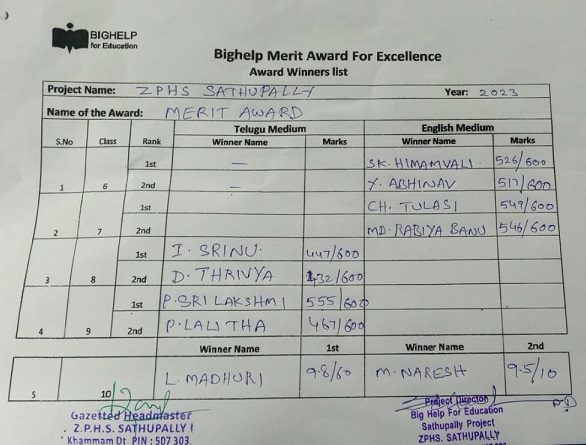 BIGHELP
for Education
Bighelp Merit Award For Excellence
Award Winners list
Project Name: ZPHS SATHUPALLY Year: 2023
Name of the Award: MERIT AWARD
Telugu Medium English Medium
S.No Class Rank Winner Name Marks Winner Name Marks
1st — SK. HIMAMVALI. 526/600
1 6 2nd — Y. ABHINAV 517/600
1st CH. TULASI 549/600
2 7 2nd MD. RABIYA BANU 546/600
1st I. SRINU. 447/600
3 8 2nd D. THRIVYA 432/600
1st P. SRI LAKSHMI 555/600
4 9 2nd P. LALITHA 467/600
Winner Name 1st Winner Name 2nd
5 10 L. MADHURI 9.8/60 M. NARESH 9.5/10
Gazetted Headmaster
Z.P.H.S. SATHUPALLY
Khammam Dt PIN : 507 303.
Project Director
Big Help For Education
Sathupally Project
ZPHS. SATHUPALLY